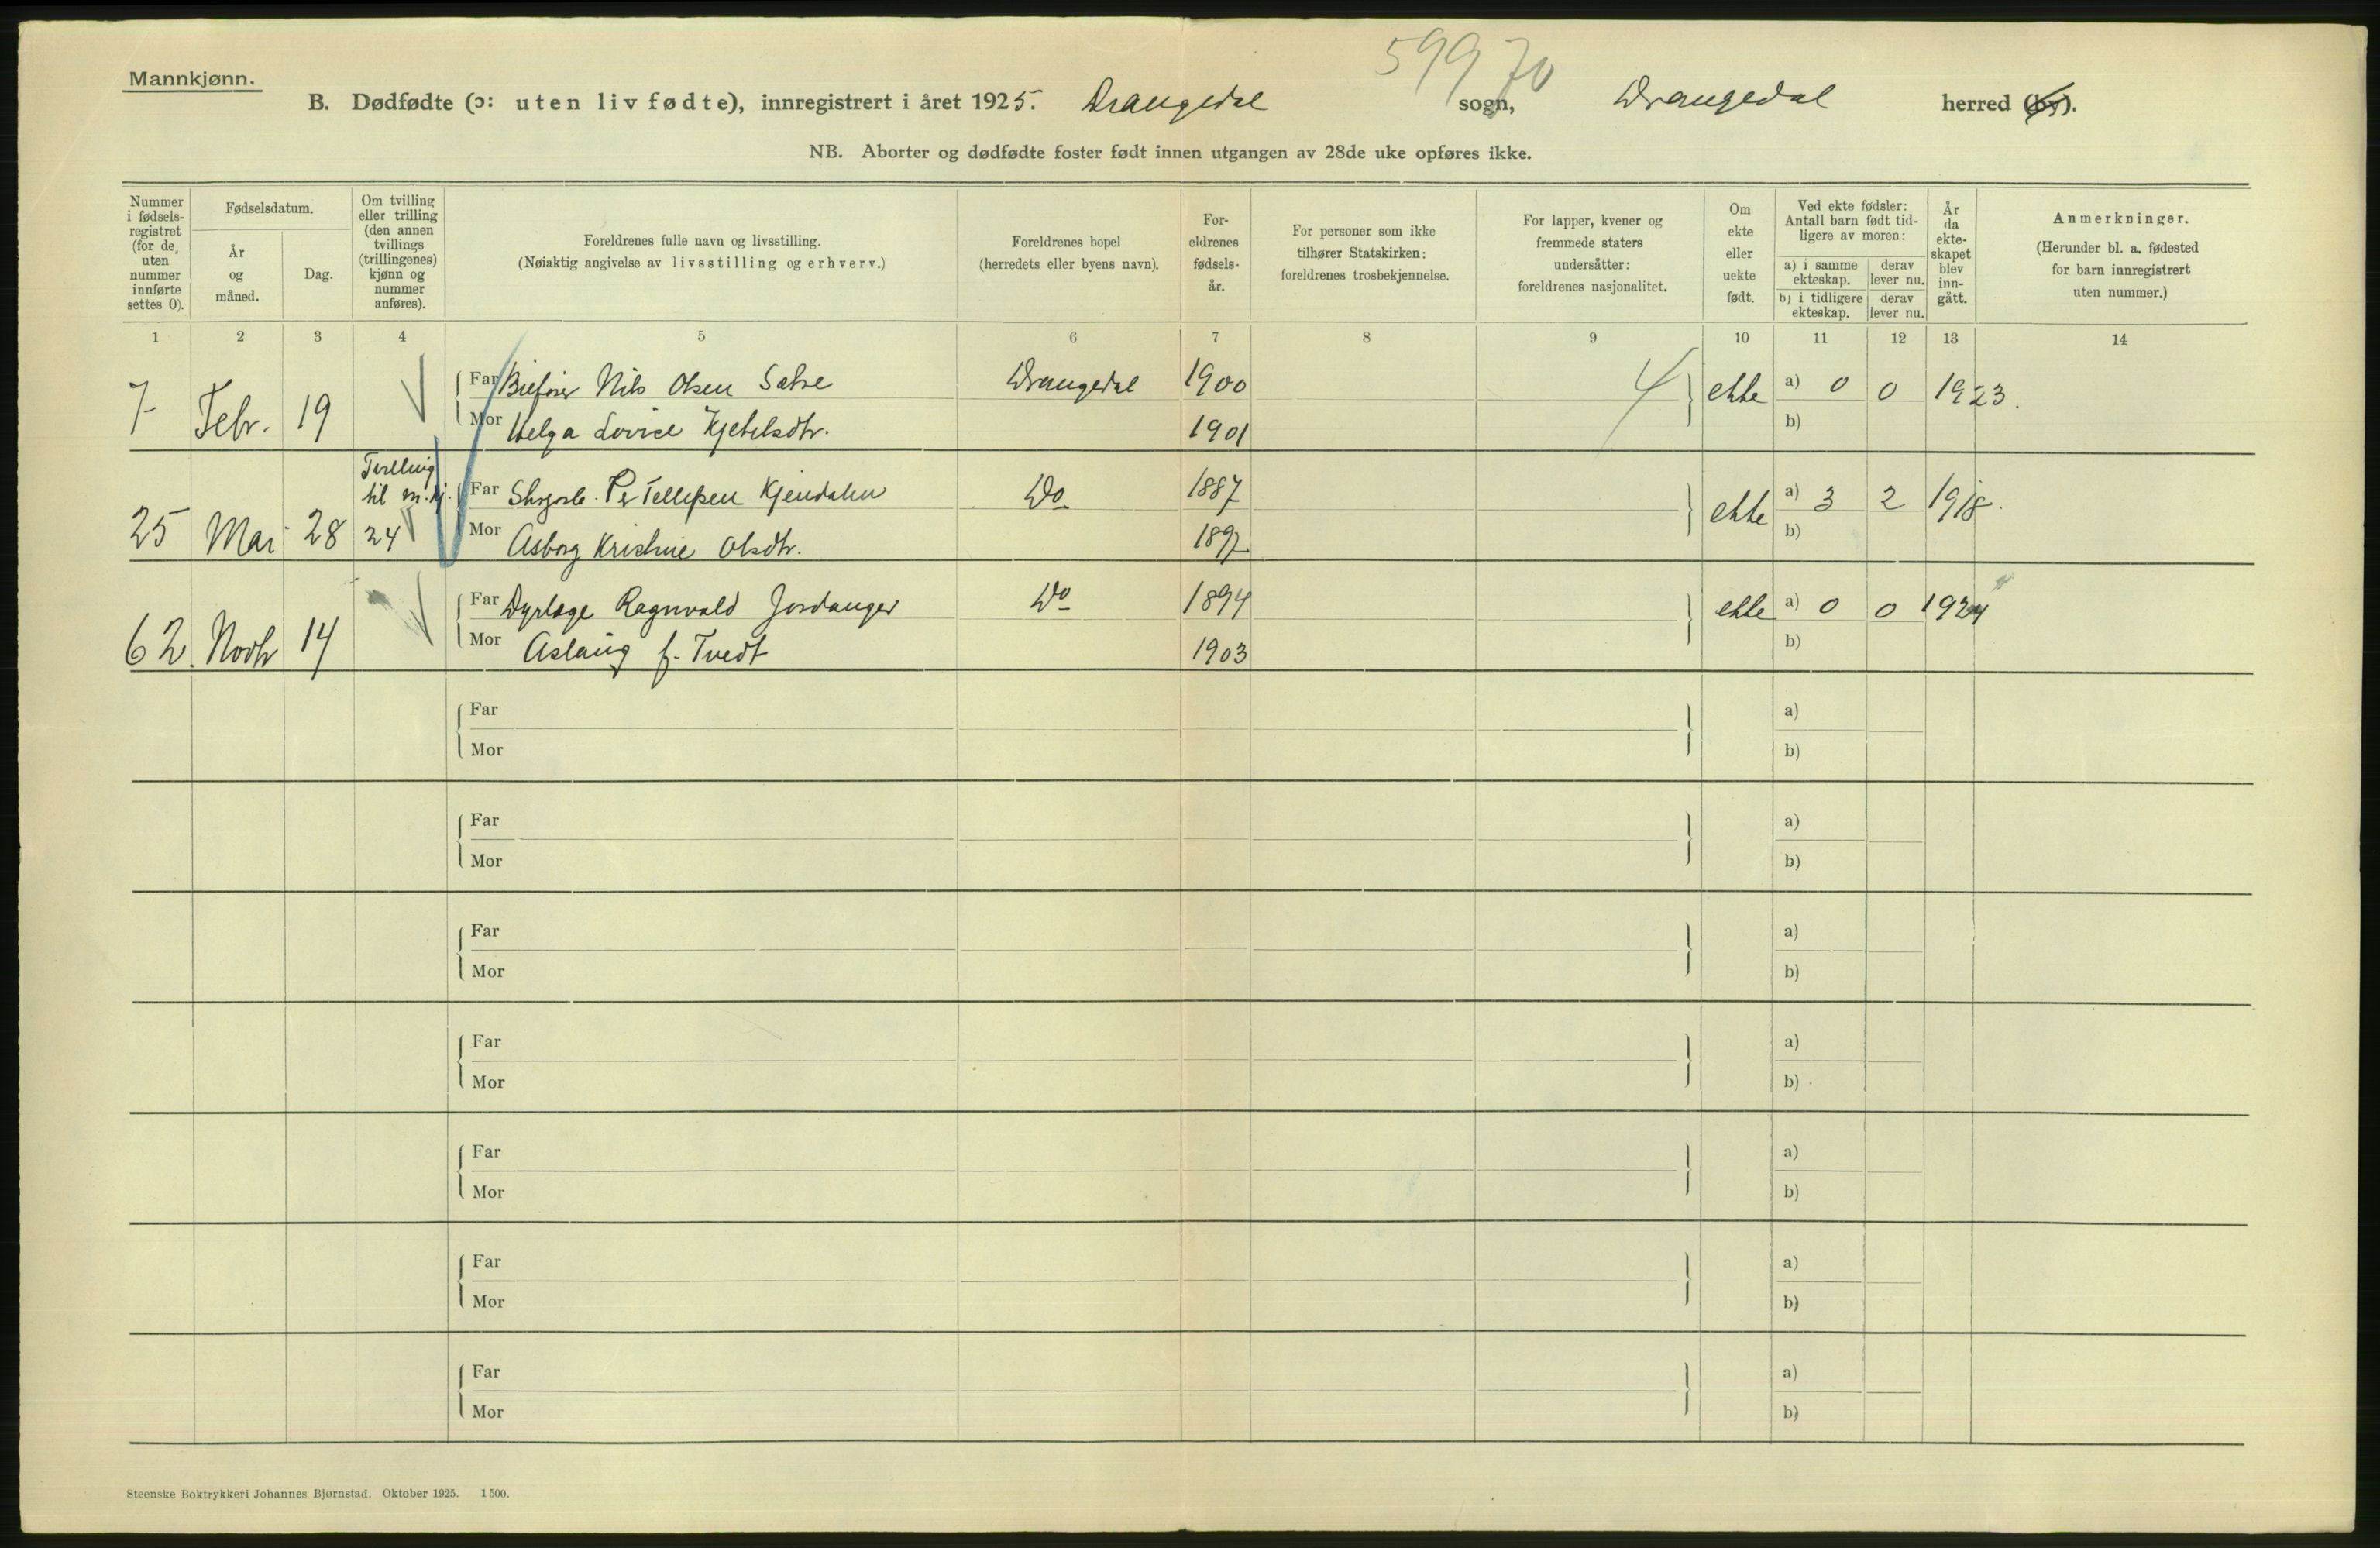 599 70
Mannkjønn.
B. Dødfødte (ɔ: uten liv fødte), innregistrert i året 1925. Drangedal sogn, Drangedal herred (by).
NB. Aborter og dødfødte foster født innen utgangen av 28de uke opføres ikke.
Nummer i fødsels-registret (for de, uten nummer innførte settes 0).
Fødselsdatum.
År og måned.
Dag.
Om tvilling eller trilling (den annen tvillings (trillingenes) kjønn og nummer anføres).
Foreldrenes fulle navn og livsstilling.
(Nøiaktig angivelse av livsstilling og erhverv.)
Foreldrenes bopel
(herredets eller byens navn).
For-eldrenes fødsels-år.
For personer som ikke tilhører Statskirken: foreldrenes trosbekjennelse.
For lapper, kvener og fremmede staters undersåtter: foreldrenes nasjonalitet.
Om ekte eller uekte født.
Ved ekte fødsler: Antall barn født tid-ligere av moren:
a) i samme ekteskap.
derav lever nu.
b) i tidligere ekteskap.
derav lever nu.
År da ekte-skapet blev inn-gått.
Anmerkninger.
(Herunder bl. a. fødested for barn innregistrert uten nummer.)
1 2 3 4 5 6 7 8 9 10 11 12 13 14
7 Febr. 19
Far Nils Olsen Drangedal 1900 4 ekte a) 0 0 1923.
Mor Helga Lovise Kjetilsdtr. 1901 b)
25 Mai 28 Tvilling til m.kj. 24
Far Tellefsen Kjendalen Do 1887 ekte a) 3 2 1918.
Mor Asborg Kristine Olsdtr. 1892 b)
62. Novbr 14
Far Dyrlæge Ragnvald Jordanger Do 1894 ekte a) 0 0 1924
Mor Aslaug f. Tvedt 1903 b)
Far a)
Mor b)
Far a)
Mor b)
Far a)
Mor b)
Far a)
Mor b)
Far a)
Mor b)
Far a)
Mor b)
Far a)
Mor b)
Steenske Boktrykkeri Johannes Bjørnstad. Oktober 1925. 1500.